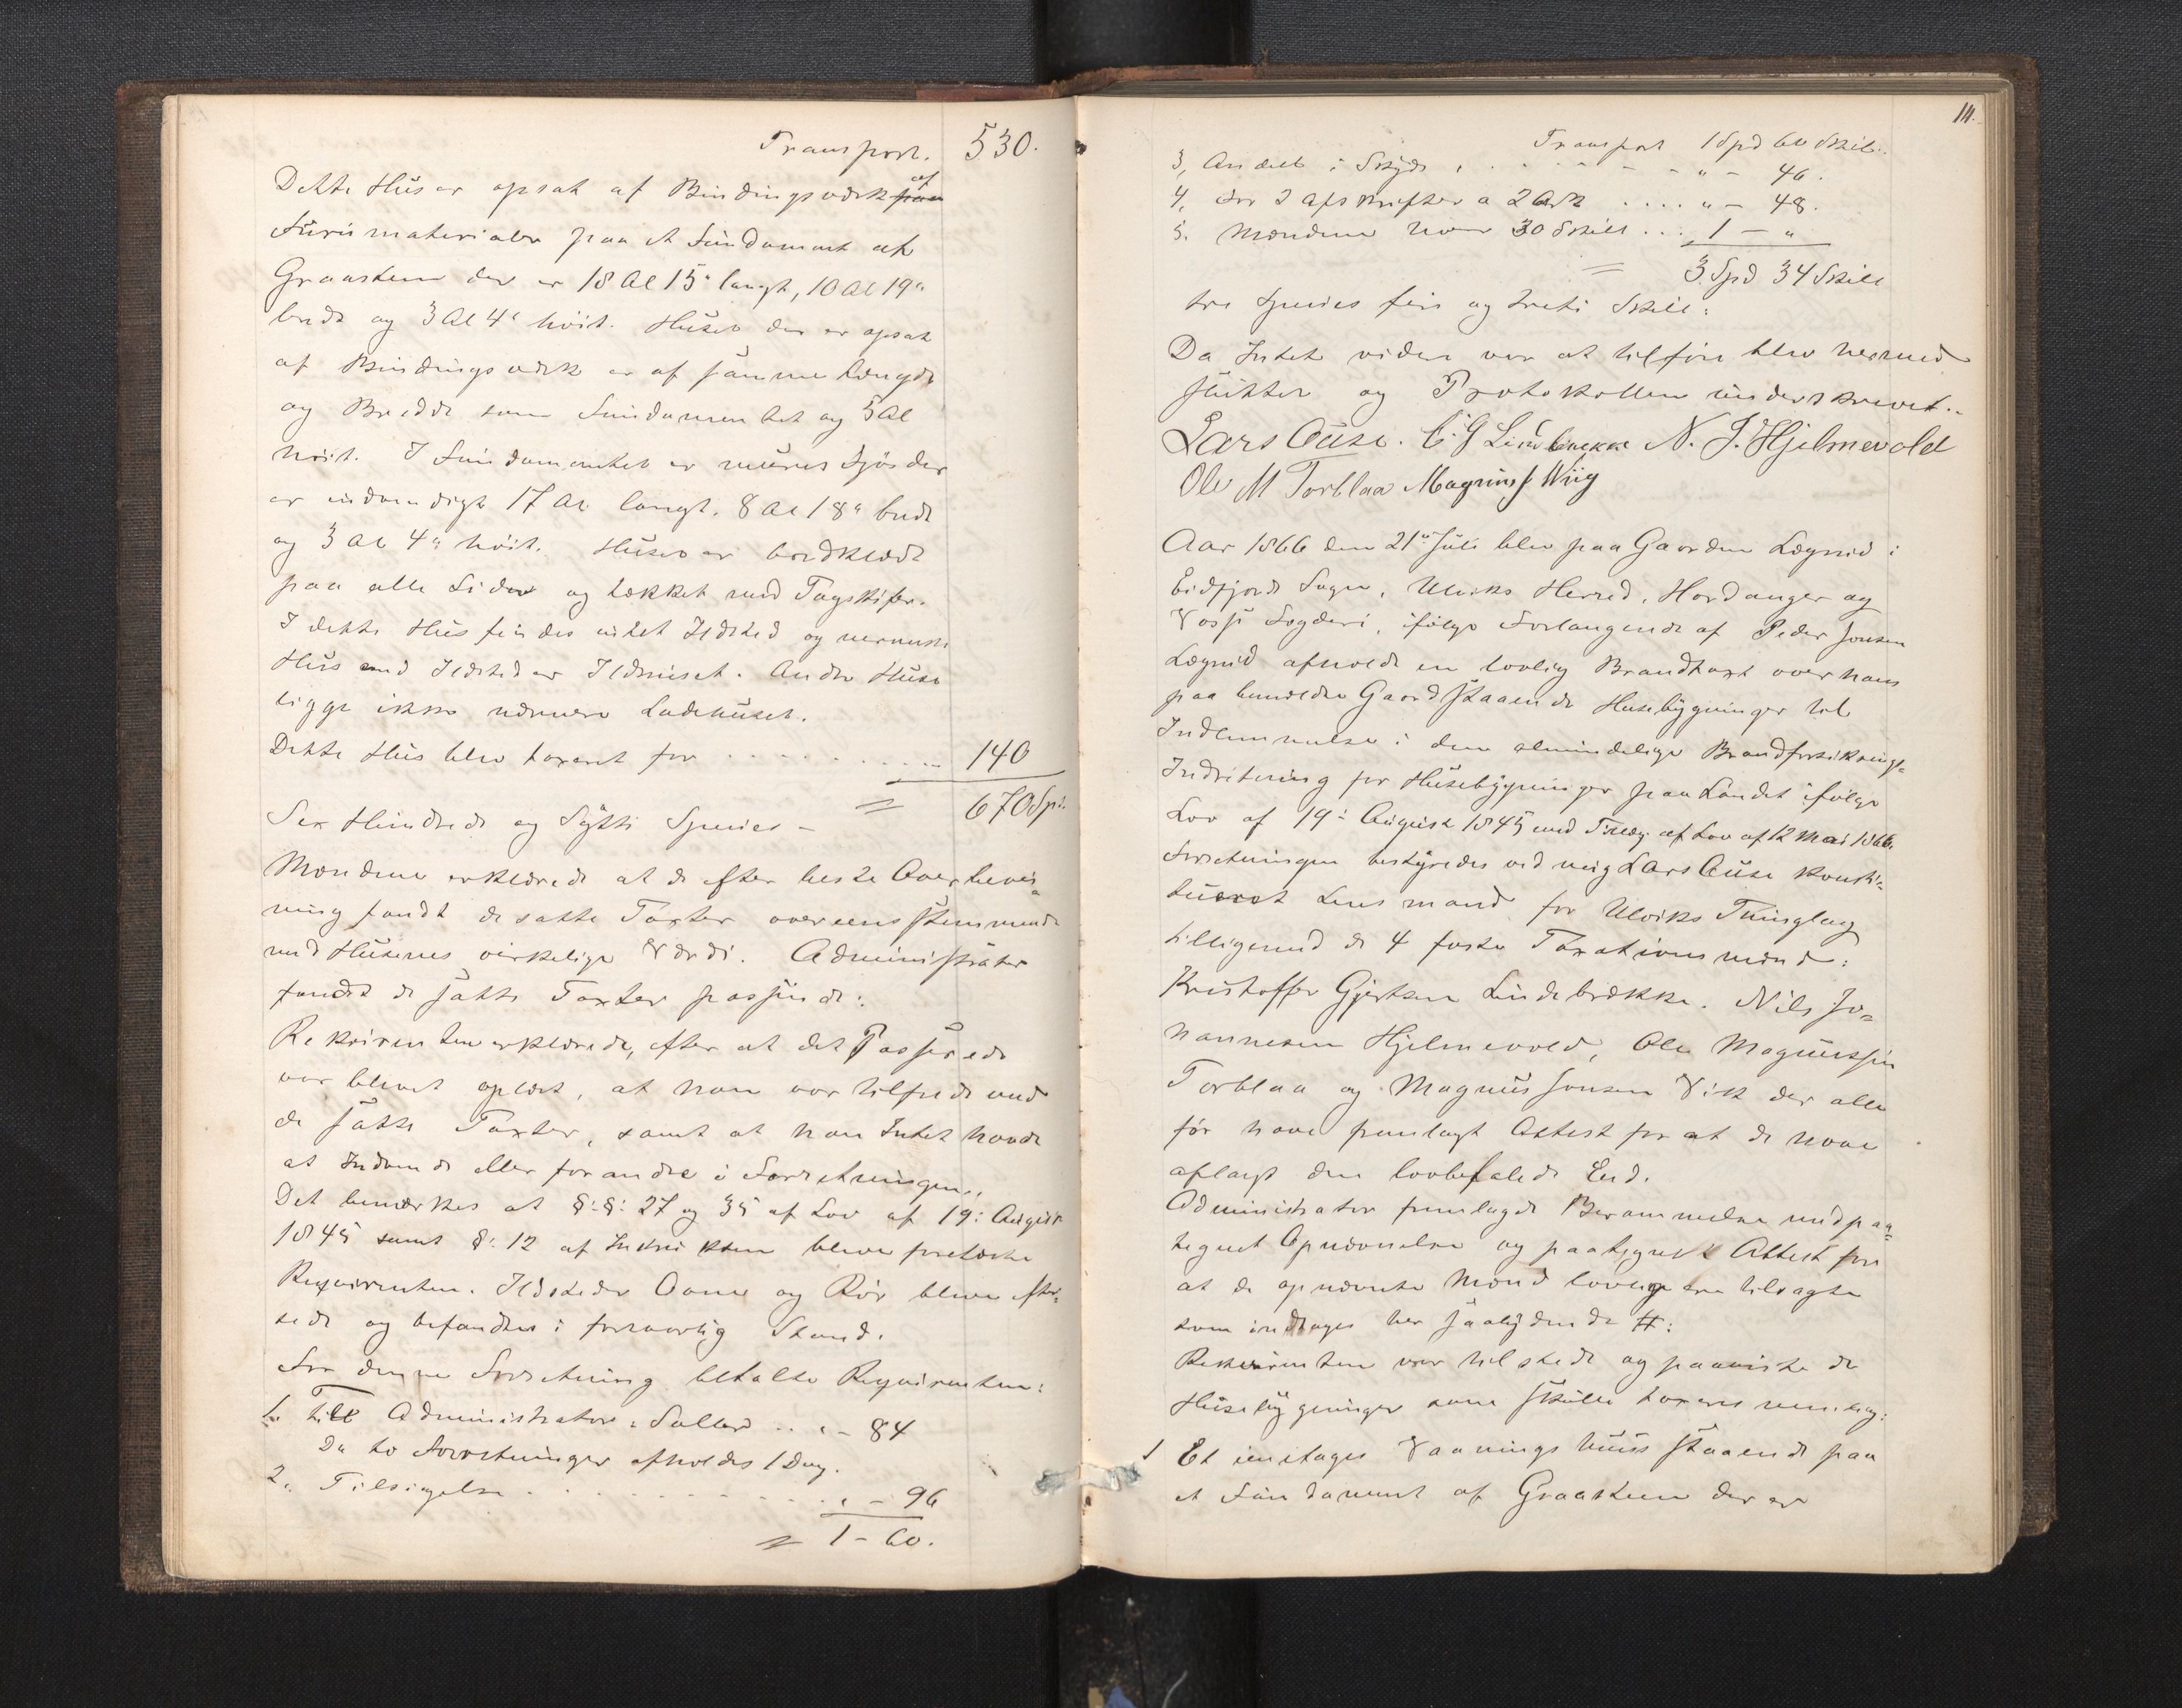 Transport. 530.
Dette Hus er opsat af Bindingsværk af
Furumaterialer paa et Fundament af
Graasteen der er 18 Al 15" langt, 10 Al 19"
bredt og 3 Al 4" høit. Huset der er opsat
af Bindingsværk er af samme Længde
og Bredde som Fundamentet og 5 Al
høit. I Fundamentet er muret Fjøs der
er indvendigt 17 Al langt, 8 Al 18" bredt
og 3 Al 4" høit. Huset er bordklædt
paa alle Sider og tækket med Tagskifer.
I dette Hus findes intet Ildsted og nærmeste
Hus med Ildsted er Ildhuset. Andre Huse
ligge ikke nærmere Ladehuset.
Dette Hus blev taxeret for . . . . . . . . . . 140
= 670 Spd.
Sex Hundrede og Sytti Species –
Mændene erklærede at de efter beste Overbeviis-
ning fandt de satte Taxter overeensstemmende
med Husenes virkelige Værdi. Administrator
fandt de satte Taxter passende:
Rekvirenten erklærede, efter at det Passerede
var blevet oplæst, at han var tilfreds med
de satte Taxter, samt at han Intet havde
at Indvende eller forandre i Forretningen.
Det bemærkes at §:§: 27 og 35 af Lov af 19: August
1845 samt §: 12 af Instruksen bleve forelæste
Requirenten. Ildsteder Ovne og Rør bleve efter-
sede og befandtes i forsvarlig Stand.
For denne Forretning betalte Requirenten:
1. Till Administrator i Sallær . . " – 84
Da to Forretninger afholdes 1 Dag.
2. Tilsigelse . . . . . . . . . . . . " – 96
= 1 – 60.
111.
Transport 1 Spd 60 Skil.
3, Andeel i Skyds , . . . . . . – " – 46.
4, For 2 Afskrifter a 2 Ark . . . . " – 48.
5. Mændene hver 30 Skill . . . 1 – "
= 3 Spd 34 Skill
tre Species fire og treti Skill:
Da Intet videre var at tilføre blev hermed
sluttet og Protokollen underskrevet..
Lars Ause. C. G Lindebrekke N. J. Hjelmevold
Ole M Torblaa Magnus J Wiig
Aar 1866 den 21de Juli blev paa Gaarden Lægreid i
Eidfjords Sogn, Ulviks Herred, Hardanger og
Voss Fogderi, ifølge Forlangende af Peder Jonsen
Lægreid afholdt en lovlig Brandtaxt over hans
paa bemeldte Gaard staaende Husebygninger til
Indlemmelse i den almindelige Brandforsikrings-
Indretning for Husebygninger paa Landet ifølge
Lov af 19: August 1845 med Tillæg af Lov af 12 Mai 1866.
Forretningen bestyredes ved mig Lars Ause konsti-
tueret Lensmand for Ulviks Thinglag
tilligemed de 4 faste Taxationsmænd:
Kristoffer Gjertsen Lindebrække. Nils Jo-
hannesen Hjelmevold, Ole Magnussen
Torblaa og Magnus Jonsen Vik der alle
før have fremlagt Attest for at de have
aflagt den lovbefalede Eed.
Administrator fremlagde Berammelse med paa-
tegnet Opnævnelse og paategnet Attest for
at de opnævnte Mænd lovlig ere tilsagte
som indtages her saalydende #:
Rekvirenten var tilstede og paaviste de
Husebygninger som skulle taxeres nemlig:
1 Et eenetages Vaaningshuus staaende paa
et Fundament af Graasteen der er